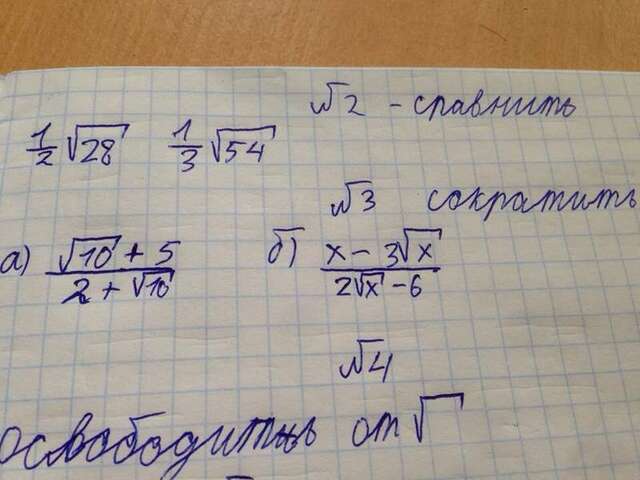 №2 - сравнить
1/2 √28   1/3 √54
№3 сократить
а) (√10 + 5)/(2 + √10)   б) (x - 3√x)/(2√x - 6)
№4
освободить от √